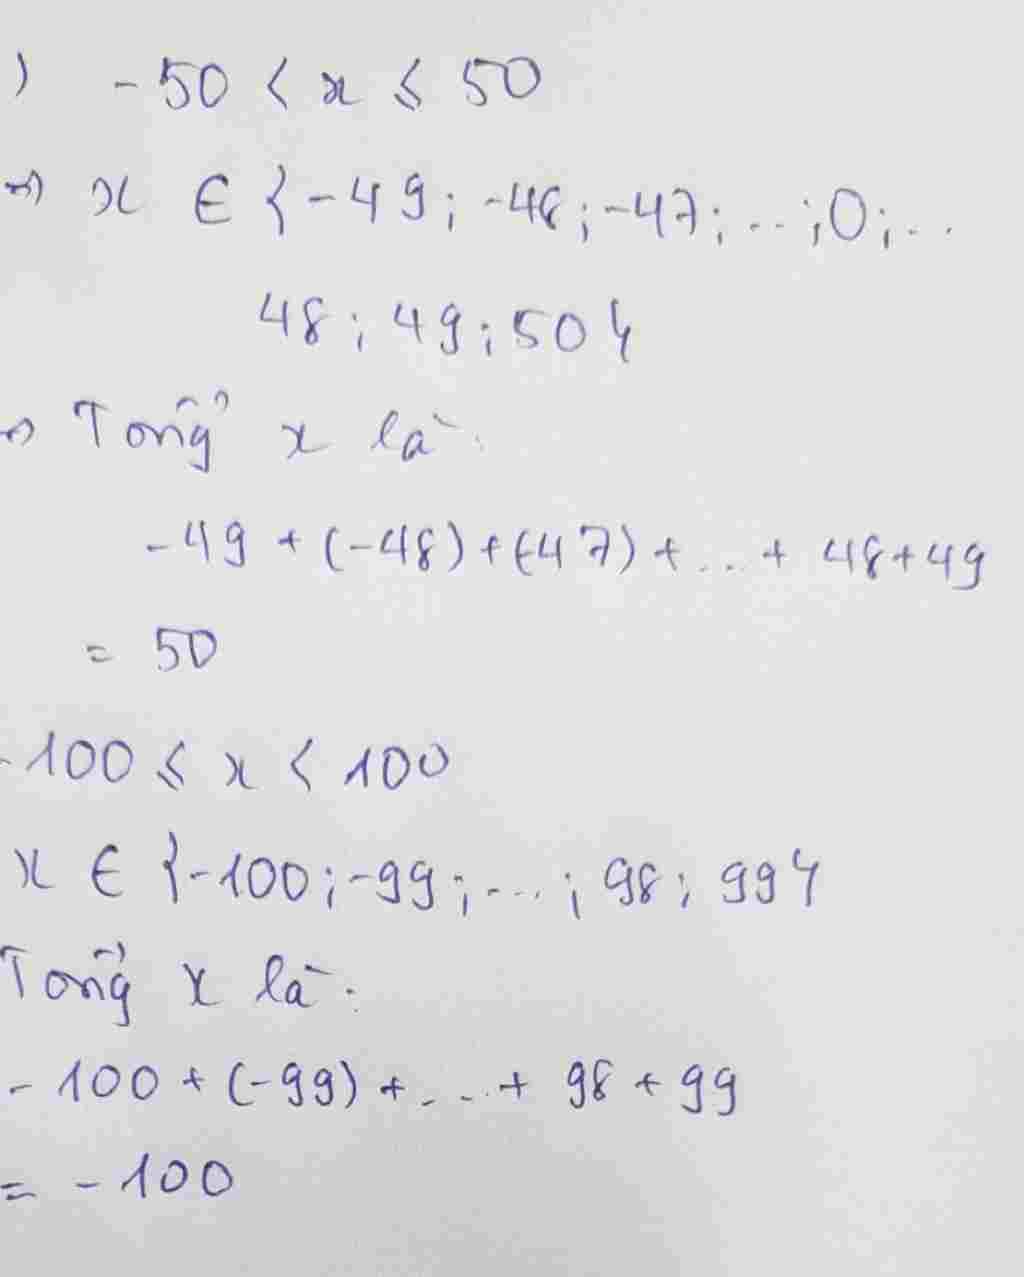 ) -50 < x ≤ 50
=> x ∈ {-49; -48; -47; ...; 0; ...
48; 49; 50}
=> Tổng x là:
-49 + (-48) + (-47) + ... + 48 + 49
= 50
-100 ≤ x < 100
x ∈ {-100; -99; ...; 98; 99}
Tổng x là:
-100 + (-99) + ... + 98 + 99
= -100